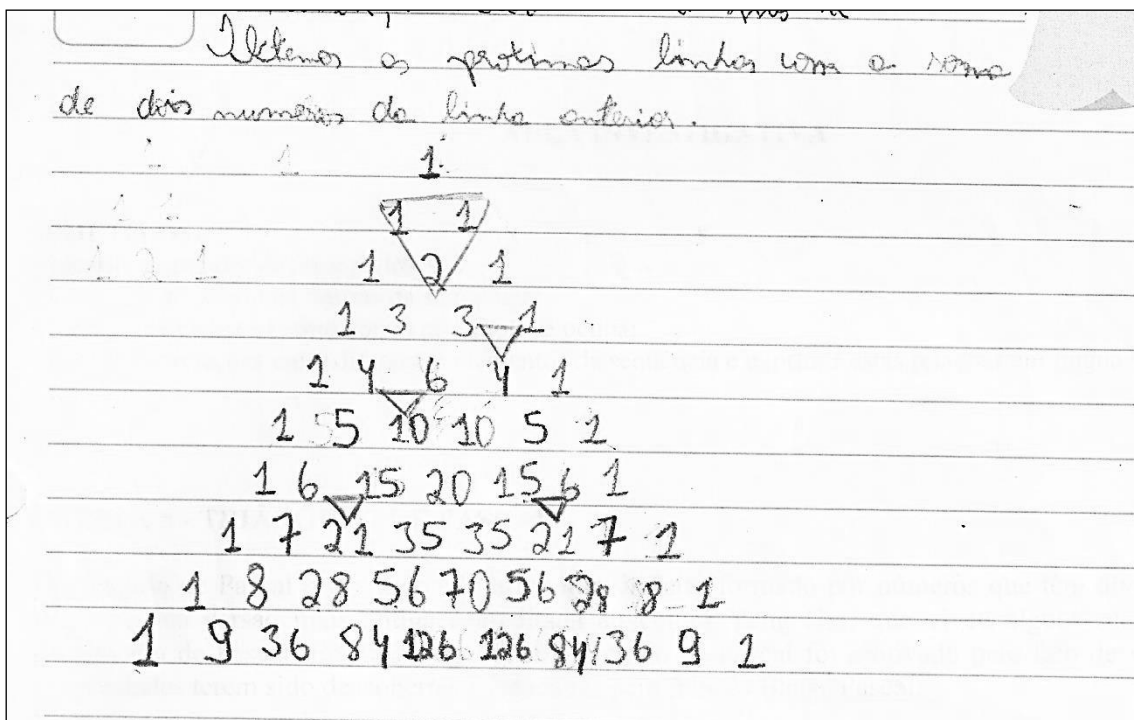 Obtemos as protimas linhas com a soma
de dois numeros da linha anterior.
1
1 1
1 2 1
1 3 3 1
1 4 6 4 1
1 5 10 10 5 1
1 6 15 20 15 6 1
1 7 21 35 35 21 7 1
1 8 28 56 70 56 28 8 1
1 9 36 84 126 126 84 36 9 1